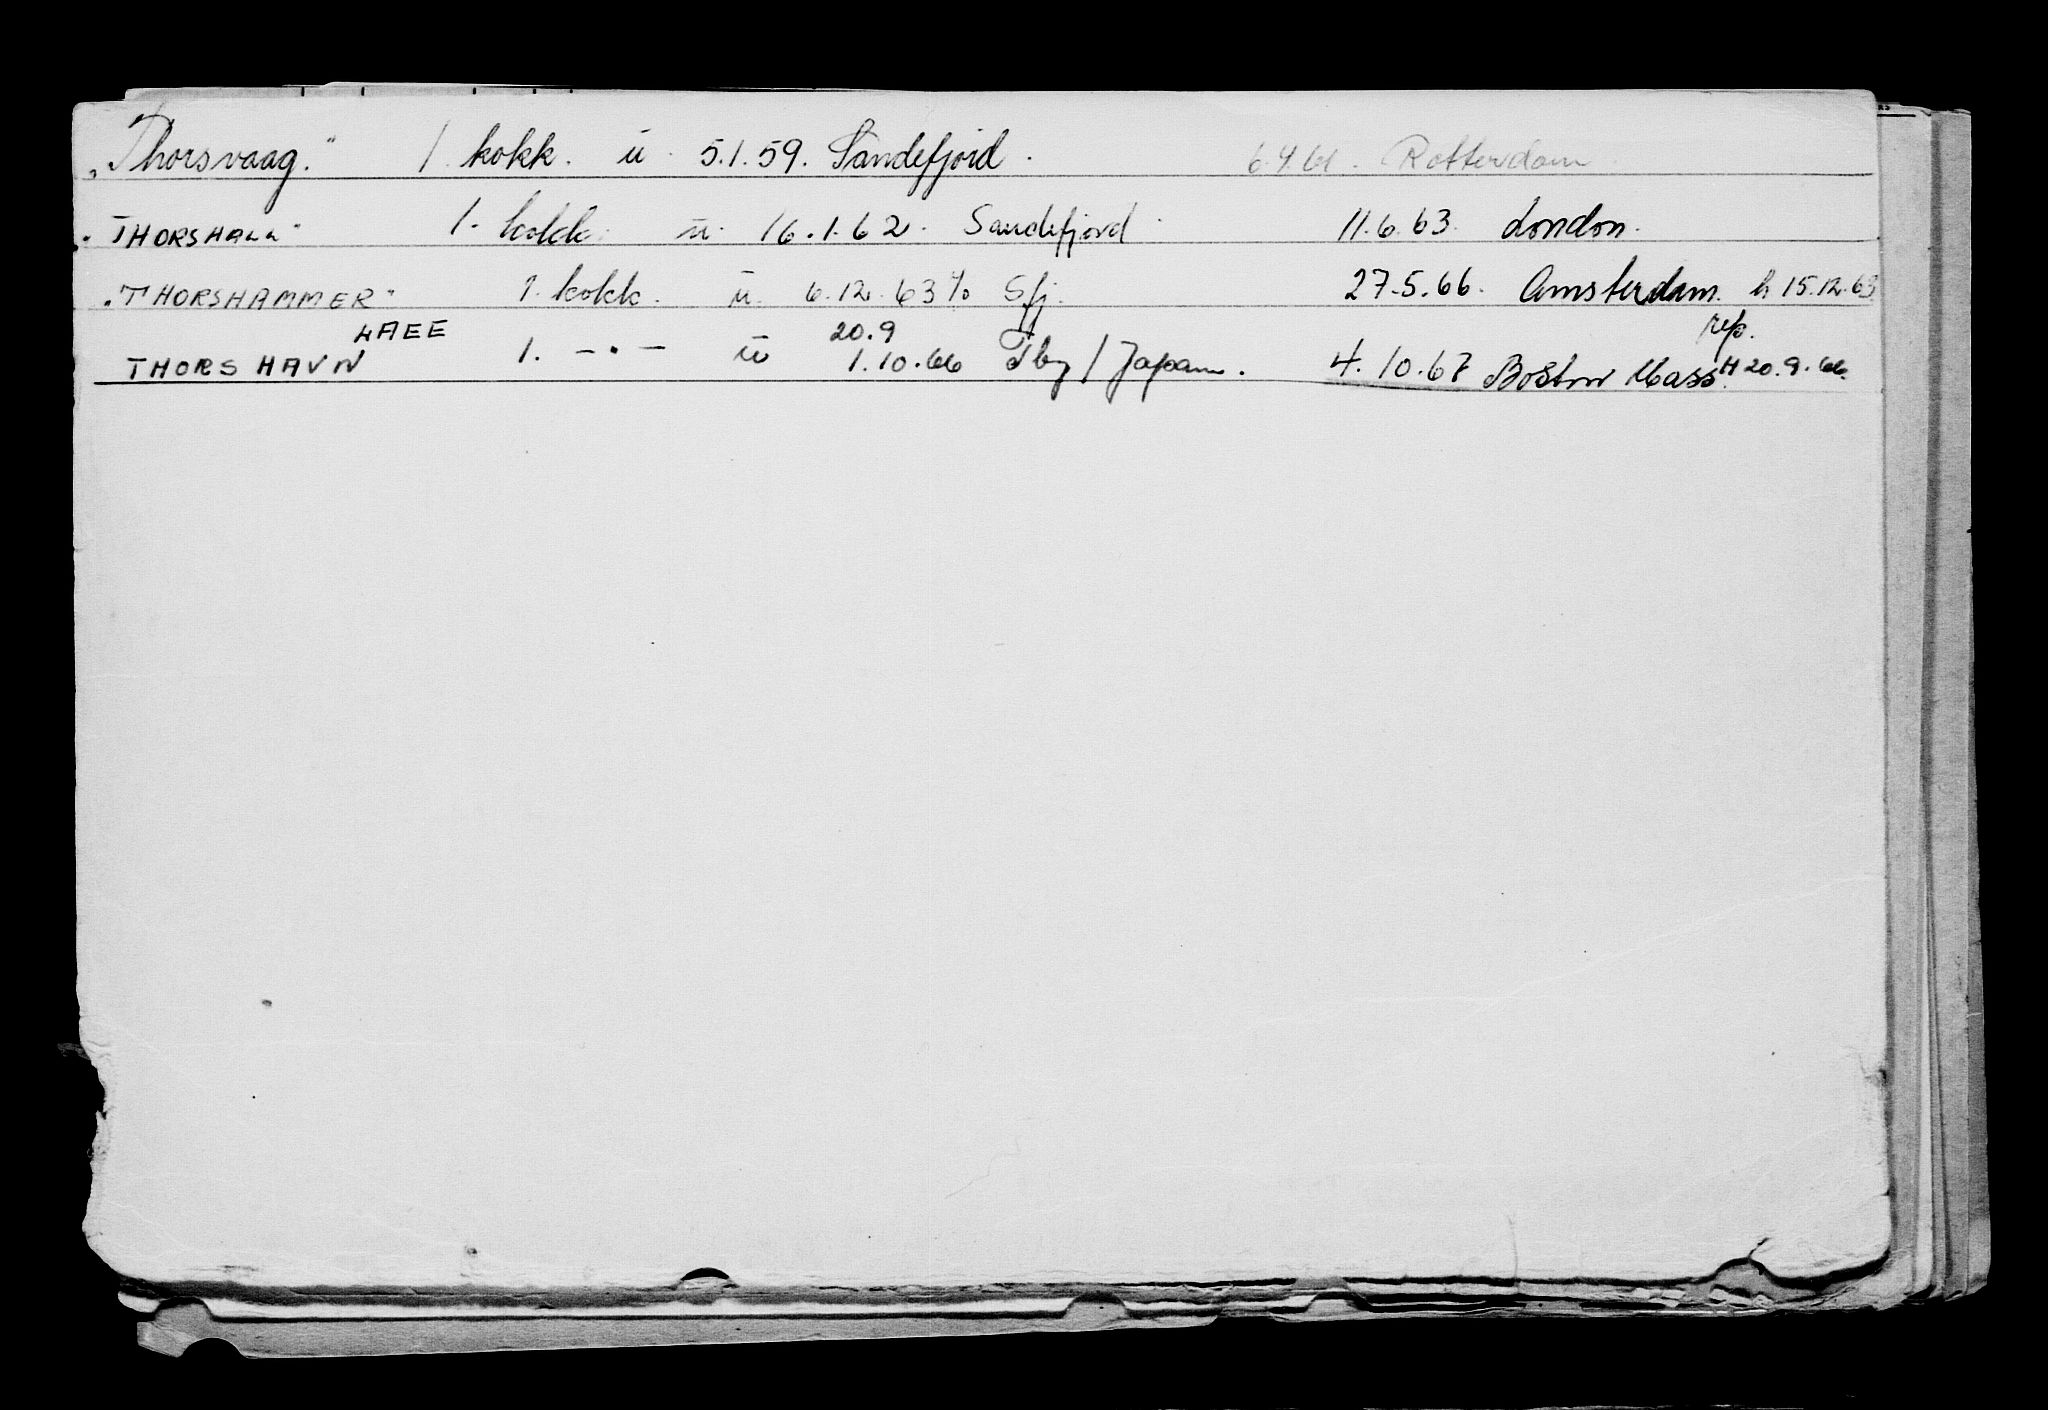 „Thorsvaag." 1 kokk. ü 5.1.59. Sandefjord. 6.4.61. Rotterdam
"THORSHALL" 1. kokk. ü. 16.1.62. Sandefjord 11.6.63. London.
"THORSHAMMER" 1. kokk. ü. 6.12.63 Sfj. 27.5.66. Amsterdam. h 15.12.63
20.9 rep.
THORSHAVN 1. —•— ü 1.10.66 / Japan. 4.10.67 Boston Mass. H 20.9.66.